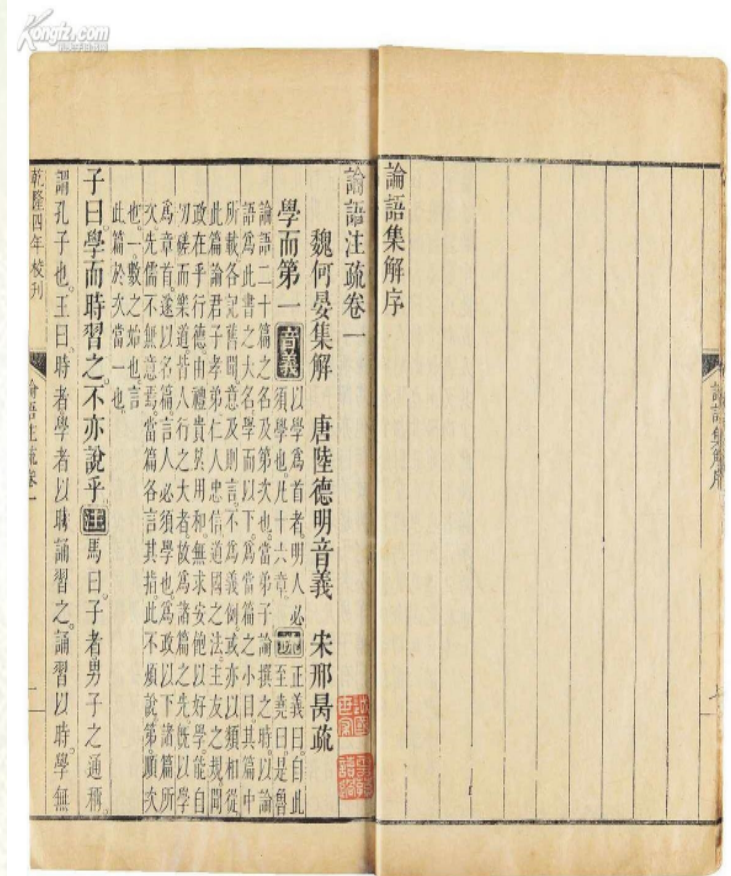 Kongfz.com
論語集解序
論語集解序
論語注疏卷一
魏何晏集解 唐陸德明音義 宋邢昺疏
學而第一 音義 以學爲首者。明人必
須學也。凡十六章。 疏 正義曰。自此
至堯曰。是魯
論語二十篇之名及第次也。當弟子論撰之時。以論
語爲此書之大名。學而以下。爲當篇之小目。其篇中
所載各記舊聞。意及則言。不爲義例。或亦以類相從。
此篇論君子孝弟。仁人忠信。道國之法。主友之規。聞
政在乎行德。由禮貴於用和。無求安飽以好學。能自
切磋而樂道。皆人行之大者。故爲諸篇之先。旣以學
爲章首。遂以名篇。言人必須學也。爲政以下。諸篇所
次。先儒不無意焉。當篇各言其指。此不煩說。第。順次
也。一。數之始也。言
此篇於次當一也。
子曰。學而時習之。不亦說乎。 注 馬曰。子者。男子之通稱。
謂孔子也。王曰。時者。學者以時誦習之。誦習以時。學無
乾隆四年校刊
論語注疏卷一